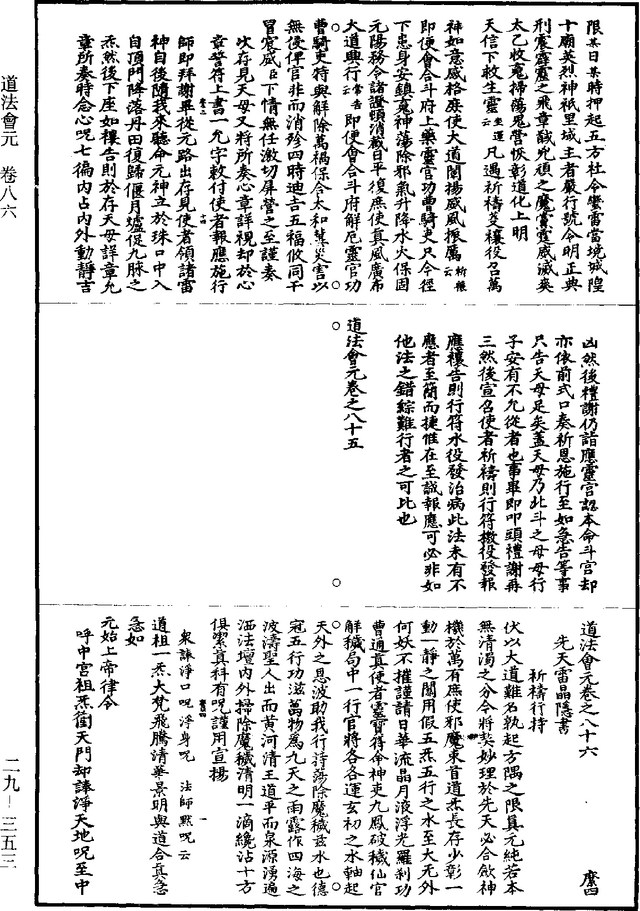 限某日某時押起五方社令蠻雷當境城隍
十廟英烈神祇里域主者嚴行號令明正典
刑震霹靂之飛章馘兇頑之魔黨霆威滅奕
太乙收魂掃蕩鬼營恢彰道化上明
天信下救生靈云云凡遇祈禱災禳役召萬
神如意感格庶使大道闡揚威風振厲祈禳云
即便會合斗府上藥靈官功曹騎吏只今徑
下患身安鎮魂神蕩除邪氣升降水火保固
元陽務令諸證頓消截日平復庶使真風廣布
大道興行云常告即便會合斗府解厄靈官功
曹騎吏特與解除萬禍保合太和其災害以
無侵俾官非而消殄四時迪吉五福攸同干
冒宸威臣下情無任激切屏營之至謹奏
次存見天母又將所奏心章詳視却於心
章警符上書一允字敕付使者報應施行
師即拜謝畢從元路出存見使者領諸雷
神自後隨我來聽命元神立於珠口中入
自頂門降落丹田復歸偃月爐促九脉之
炁然後下座如禳告則於存天母詳章允
章所奏時念心呪七徧内占内外動靜吉
凶然後禮謝仍詣應靈宫認本命斗宫却
亦依前式口奏祈恩施行至如急告等事
只告天母足矣蓋天母乃北斗之母母行
子安有不允從者也事畢即叩頭禮謝再
三然後宣召使者祈禱則行符檄役發報
應禳告則行符水役發治病此法未有不
應者至簡而捷惟在至誠報應可必非如
他法之錯綜難行者之可比也
道法會元卷之八十五
道法會元卷之八十六
先天雷晶隱書
祈禱行持
伏以大道難名孰起方隅之限真元純若本
無清濁之分今將契妙理於先天必合歛神
機於萬有庶使邪魔束首道炁長存少彰一
動一靜之間用假五炁五行之水至大无外
何妖不摧謹請日華流晶月液浮光羅刹功
曹通真使者靈寶符命神吏九鳳破穢仙官
解穢局中一行官將各各運玄初之水軸起
天外之恩波助我行持蕩除魔穢兹水也德
冠五行功滋萬物為九天之雨露作四海之
波濤聖人出而黄河清王道平而泉源湧遍
洒法壇内外掃除魔穢清明一滴纔沾十方
俱潔真科有呪謹用宣揚
衆誦淨口呪淨身呪 法師默呪云
道祖一炁大梵飛騰清華景明與道合真急
急如
元始上帝律令
呼中宫祖炁衝天門却誦淨天地呪至中
道法會元 卷八六
二九—三五三